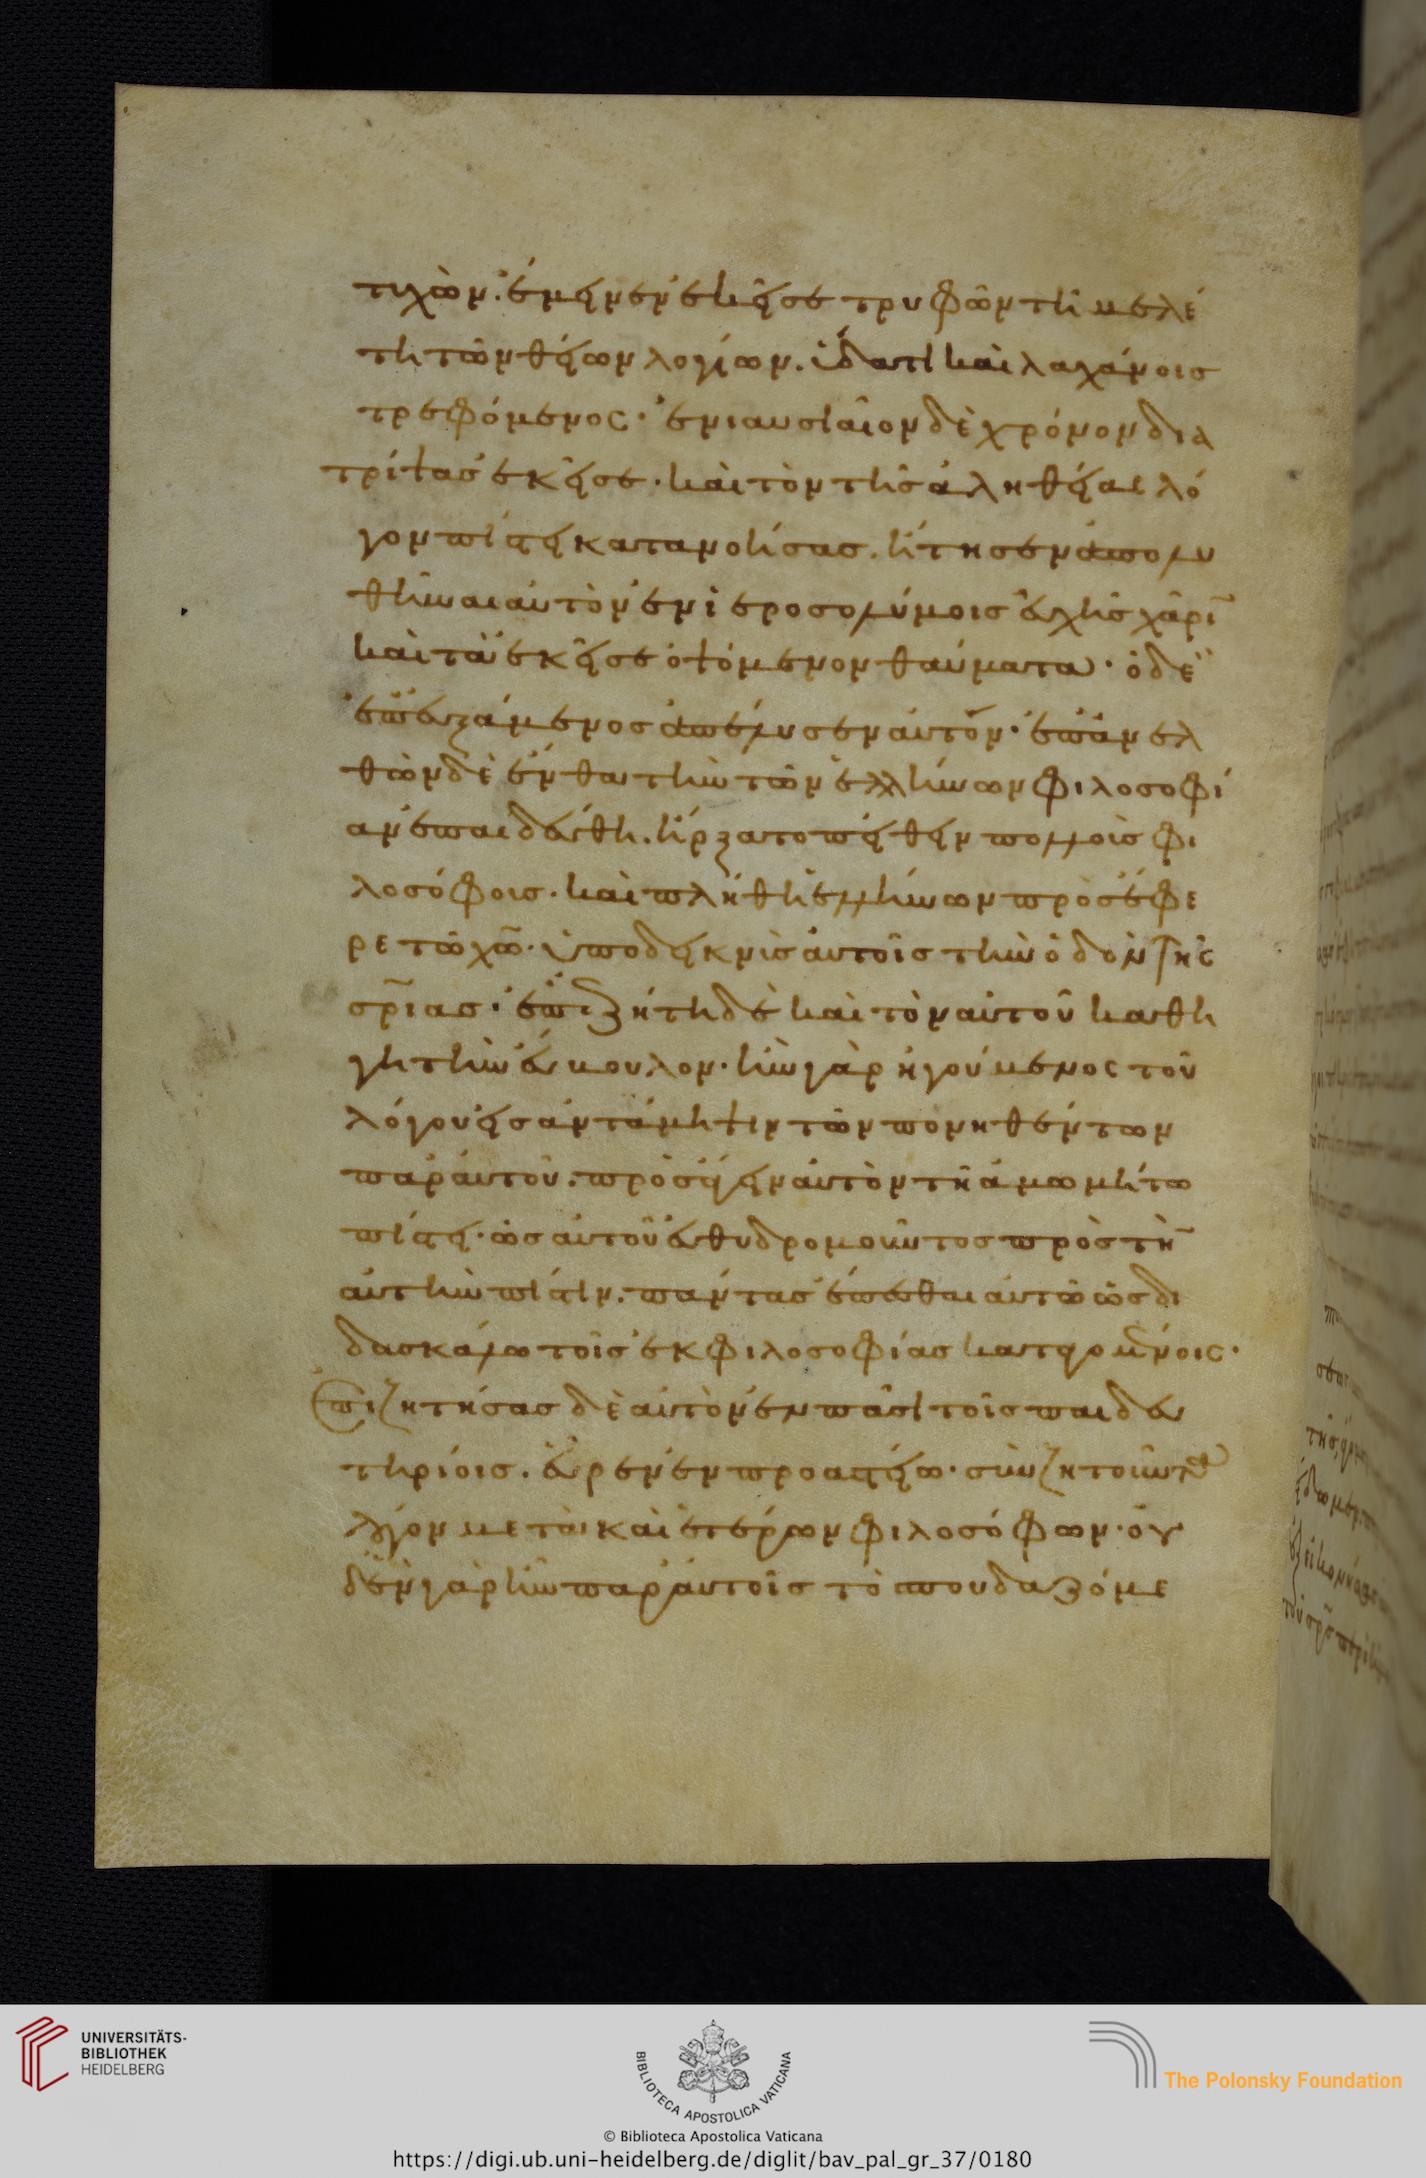 τιχῶν. ἔμεινεν ἐκεῖσε τρυφῶν τῆ μελέ
τη τῶν θείων λογίων. ὕδατι καὶ λαχάνοις
τρεφόμενος· ἐνιαυσιαῖον δὲ χρόνον δια
τρίψας ἐκεῖσε· καὶ τὸν τῆς ἀληθείας λό
γον πίστει κατανοήσας. ἤτησεν ἀπολυ
θῆναι αὐτὸν ἐν ἱεροσολύμοις εὐχῆς χάρι̅
καὶ τὰ ἐκεῖσε ὀψόμενον θαύματα· ὁ δὲ
ἐπευξάμενος ἀπέλυσεν αὐτόν· ἐπανελ
θὼν δὲ ἔνθα τὴν τῶν ἑλλήνων φιλοσοφί
αν ἐπαιδεύθη. ἤρξατο πείθειν πολλοὺς φι
λοσόφοις· καὶ πλήθη ἑλλήνων προσέφε
ρε τῶ χω̅· ὑποδεικνὺς αὐτοῖς τὴν ὁδὸν τῆς
σρ̅ιας· ἐπιζήτη δὲ καὶ τὸν αὐτοῦ καθη
γητὴν εὔκουλον· ἦν γὰρ ἡγούμενος τοῦ
λόγου εἰς ἀντάμηψιν τῶν πονηθέντων
παρ' αὐτοῦ. προσάγειν αὐτὸν τῆ ἀμωμήτω
πίστει· ὡς αὐτοῦ εὐθυδρομοῦντος πρὸς τὴ̅
αὐτὴν πίστιν. πάντας ἕπεσθαι αὐτῶ ὡς δι
δασκάλω τοῖς ἐκ φιλοσοφίας
Ἐπιζητήσας δὲ αὐτὸν ἐν πᾶσι τοῖς παιδευ
τηρίοις. εὗρεν ἐν προαστείω· συνζητοῦντα
λόγον μετὰ καὶ ἑτέρων φιλοσόφων· οὐ
δὲν γὰρ ἦν παρ' αὐτοῖς τὸ σπουδαζόμε
UNIVERSITÄTS-
BIBLIOTHEK
HEIDELBERG
BIBLIOTECA APOSTOLICA VATICANA
The Polonsky Foundation
© Biblioteca Apostolica Vaticana
https://digi.ub.uni-heidelberg.de/diglit/bav_pal_gr_37/0180